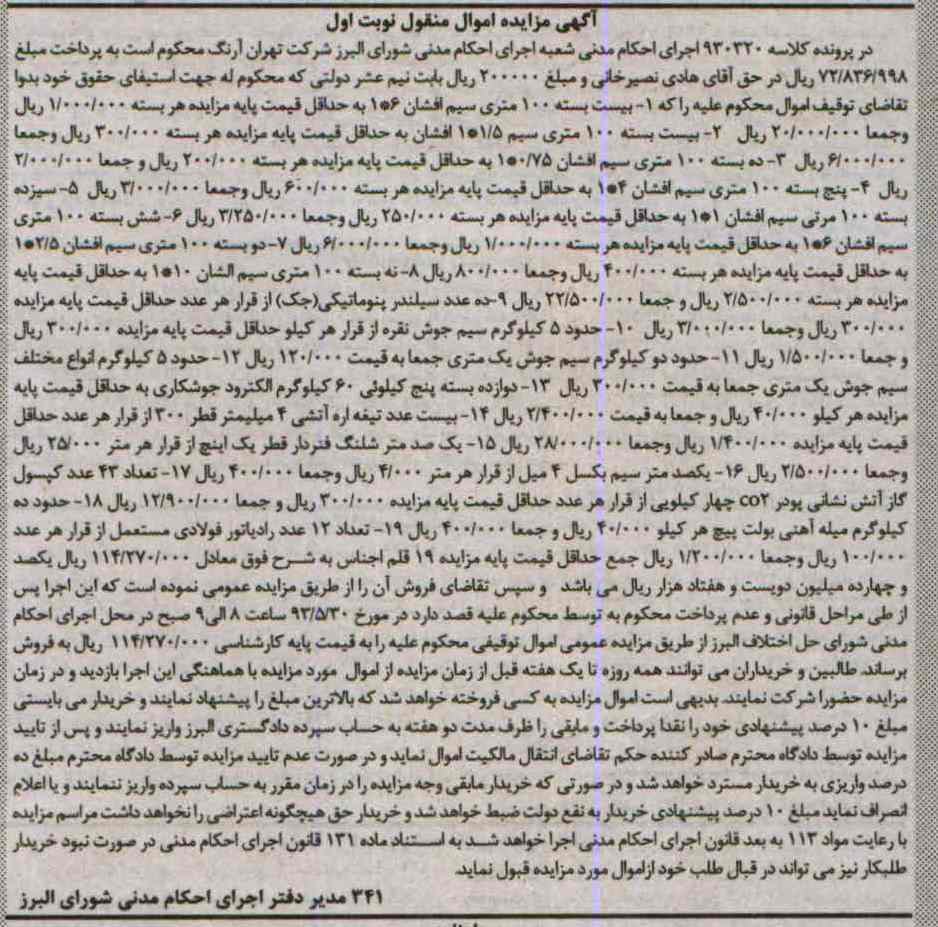 آگهی مزایده اموال منقول نوبت اول
در پرونده کلاسه ۹۳۰۳۲۰ اجرای احکام مدنی شعبه اجرای احکام مدنی شورای البرز شرکت تهران آرنگ محکوم است به پرداخت مبلغ
۷۲/۸۳۶/۹۹۸ ریال در حق آقای هادی نصیرخانی و مبلغ ۲۰۰۰۰۰ ریال بابت نیم عشر دولتی که محکوم له جهت استیفای حقوق خود بدوا
تقاضای توقیف اموال محکوم علیه را که ۱- بیست بسته ۱۰۰ متری سیم افشان ۶*۱ به حداقل قیمت پایه مزایده هر بسته ۱/۰۰۰/۰۰۰ ریال
وجمعا ۲۰/۰۰۰/۰۰۰ ریال ۲- بیست بسته ۱۰۰ متری سیم ۱/۵*۱ افشان به حداقل قیمت پایه مزایده هر بسته ۳۰۰/۰۰۰ ریال وجمعا
۶/۰۰۰/۰۰۰ ریال ۳- ده بسته ۱۰۰ متری سیم افشان ۰/۷۵*۱ به حداقل قیمت پایه مزایده هر بسته ۲۰۰/۰۰۰ ریال و جمعا ۲/۰۰۰/۰۰۰
ریال ۴- پنج بسته ۱۰۰ متری سیم افشان ۴*۱ به حداقل قیمت پایه مزایده هر بسته ۶۰۰/۰۰۰ ریال وجمعا ۳/۰۰۰/۰۰۰ ریال ۵- سیزده
بسته ۱۰۰ مرتی سیم افشان ۱*۱ به حداقل قیمت پایه مزایده هر بسته ۲۵۰/۰۰۰ ریال وجمعا ۳/۲۵۰/۰۰۰ ریال ۶- شش بسته ۱۰۰ متری
سیم افشان ۶*۱ به حداقل قیمت پایه مزایده هر بسته ۱/۰۰۰/۰۰۰ ریال وجمعا ۶/۰۰۰/۰۰۰ ریال ۷- دو بسته ۱۰۰ متری سیم افشان ۲/۵*۱
به حداقل قیمت پایه مزایده هر بسته ۴۰۰/۰۰۰ ریال وجمعا ۸۰۰/۰۰۰ ریال ۸- نه بسته ۱۰۰ متری سیم الشان ۱۰*۱ به حداقل قیمت پایه
مزایده هر بسته ۲/۵۰۰/۰۰۰ ریال و جمعا ۲۲/۵۰۰/۰۰۰ ریال ۹-ده عدد سیلندر پنوماتیکی(جک) از قرار هر عدد حداقل قیمت پایه مزایده
۳۰۰/۰۰۰ ریال وجمعا ۳/۰۰۰/۰۰۰ ریال ۱۰- حدود ۵ کیلوگرم سیم جوش نقره از قرار هر کیلو حداقل قیمت پایه مزایده ۳۰۰/۰۰۰ ریال
و جمعا ۱/۵۰۰/۰۰۰ ریال ۱۱- حدود دو کیلوگرم سیم جوش یک متری جمعا به قیمت ۱۲۰/۰۰۰ ریال ۱۲- حدود ۵ کیلوگرم انواع مختلف
سیم جوش یک متری جمعا به قیمت ۳۰۰/۰۰۰ ریال ۱۳- دوازده بسته پنج کیلوئی ۶۰ کیلوگرم الکترود جوشکاری به حداقل قیمت پایه
مزایده هر کیلو ۴۰/۰۰۰ ریال و جمعا به قیمت ۲/۴۰۰/۰۰۰ ریال ۱۴- بیست عدد تیغه اره آتشی ۴ میلیمتر قطر ۳۰۰ از قرار هر عدد حداقل
قیمت پایه مزایده ۱/۴۰۰/۰۰۰ ریال وجمعا ۲۸/۰۰۰/۰۰۰ ریال ۱۵- یک صد متر شلنگ فنردار قطر یک اینچ از قرار هر متر ۲۵/۰۰۰ ریال
وجمعا ۲/۵۰۰/۰۰۰ ریال ۱۶- یکصد متر سیم بکسل ۴ میل از قرار هر متر ۴/۰۰۰ ریال وجمعا ۴۰۰/۰۰۰ ریال ۱۷- تعداد ۴۳ عدد کپسول
گاز آتش نشانی پودر co۲ چهار کیلویی از قرار هر عدد حداقل قیمت پایه مزایده ۳۰۰/۰۰۰ ریال و جمعا ۱۲/۹۰۰/۰۰۰ ریال ۱۸- حدود ده
کیلوگرم میله آهنی بولت پیچ هر کیلو ۴۰/۰۰۰ ریال و جمعا ۴۰۰/۰۰۰ ریال ۱۹- تعداد ۱۲ عدد رادیاتور فولادی مستعمل از قرار هر عدد
۱۰۰/۰۰۰ ریال وجمعا ۱/۲۰۰/۰۰۰ ریال جمع حداقل قیمت پایه مزایده ۱۹ قلم اجناس به شرح فوق معادل ۱۱۴/۲۷۰/۰۰۰ ریال یکصد
و چهارده میلیون دویست و هفتاد هزار ریال می باشد و سپس تقاضای فروش آن را از طریق مزایده عمومی نموده است که این اجرا پس
از طی مراحل قانونی و عدم پرداخت محکوم به توسط محکوم علیه قصد دارد در مورخ ۹۳/۵/۳۰ ساعت ۸ الی۹ صبح در محل اجرای احکام
مدنی شورای حل اختلاف البرز از طریق مزایده عمومی اموال توقیفی محکوم علیه را به قیمت پایه کارشناسی ۱۱۴/۲۷۰/۰۰۰ ریال به فروش
برساند. طالبین و خریداران می توانند همه روزه تا یک هفته قبل از زمان مزایده از اموال مورد مزایده با هماهنگی این اجرا بازدید و در زمان
مزایده حضورا شرکت نمایند. بدیهی است اموال مزایده به کسی فروخته خواهد شد که بالاترین مبلغ را پیشنهاد نمایند و خریدار می بایستی
مبلغ ۱۰ درصد پیشنهادی خود را نقدا پرداخت و مابقی را ظرف مدت دو هفته به حساب سپرده دادگستری البرز واریز نمایند و پس از تایید
مزایده توسط دادگاه محترم صادر کننده حکم تقاضای انتقال مالکیت اموال نماید و در صورت عدم تایید مزایده توسط دادگاه محترم مبلغ ده
درصد واریزی به خریدار مسترد خواهد شد و در صورتی که خریدار مابقی وجه مزایده را در زمان مقرر به حساب سپرده واریز ننمایند و یا اعلام
انصراف نماید مبلغ ۱۰ درصد پیشنهادی خریدار به نفع دولت ضبط خواهد شد و خریدار حق هیچگونه اعتراضی را نخواهد داشت مراسم مزایده
با رعایت مواد ۱۱۳ به بعد قانون اجرای احکام مدنی اجرا خواهد شد به استناد ماده ۱۳۱ قانون اجرای احکام مدنی در صورت نبود خریدار
طلبکار نیز می تواند در قبال طلب خود ازاموال مورد مزایده قبول نماید.
۳۴۱ مدیر دفتر اجرای احکام مدنی شورای البرز